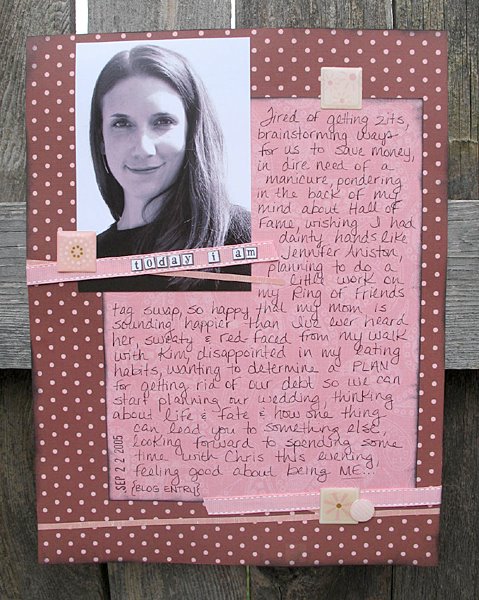 Tired of getting zits,
brainstorming ways
for us to save money,
in dire need of a
manicure, pondering
in the back of my
mind about Hall of
Fame, wishing I had
dainty hands like
Jennifer Aniston,
today i am
planning to do a
little work on
my Ring of Friends
tag swap, so happy that my mom is
sounding happier than I've ever heard
her, sweaty & red-faced from my walk
with Kim, disappointed in my eating
habits, wanting to determine a PLAN
for getting rid of our debt so we can
start planning our wedding, thinking
about life & fate & how one thing
can lead you to something else,
looking forward to spending some
time with Chris this evening,
feeling good about being ME...
SEP 22 2005
{BLOG ENTRY}